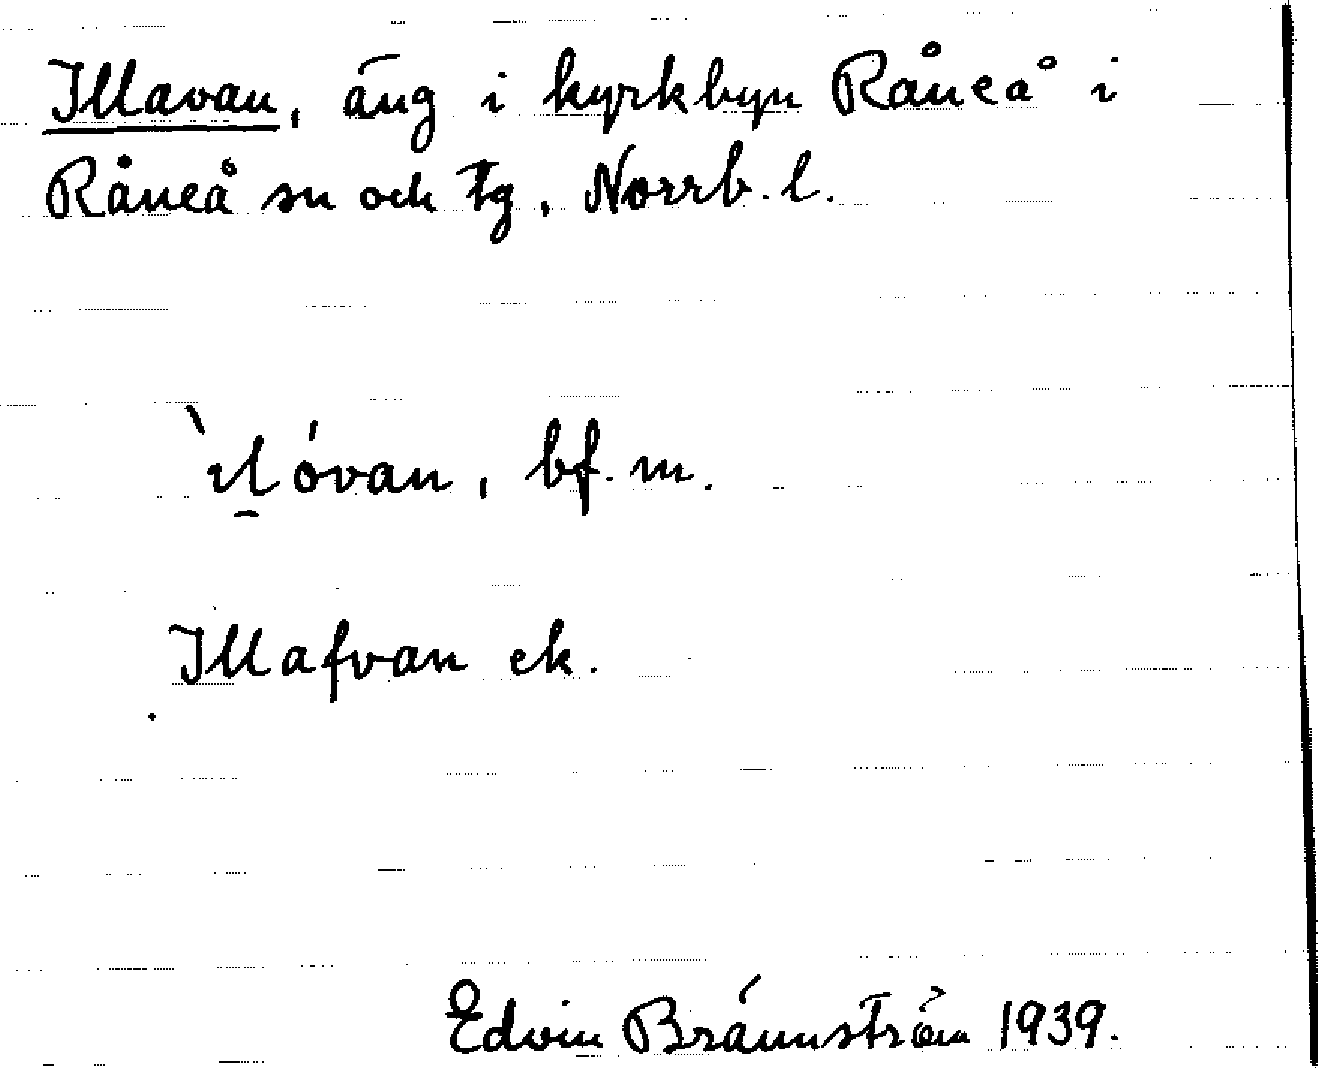 Illavan, äng i kyrkbyn Råneå i
Råneå sn och tg, Norrb. l.
`ıl̠óvan, bf. m.
Illafvan ek.
Edvin Brännström 1939.